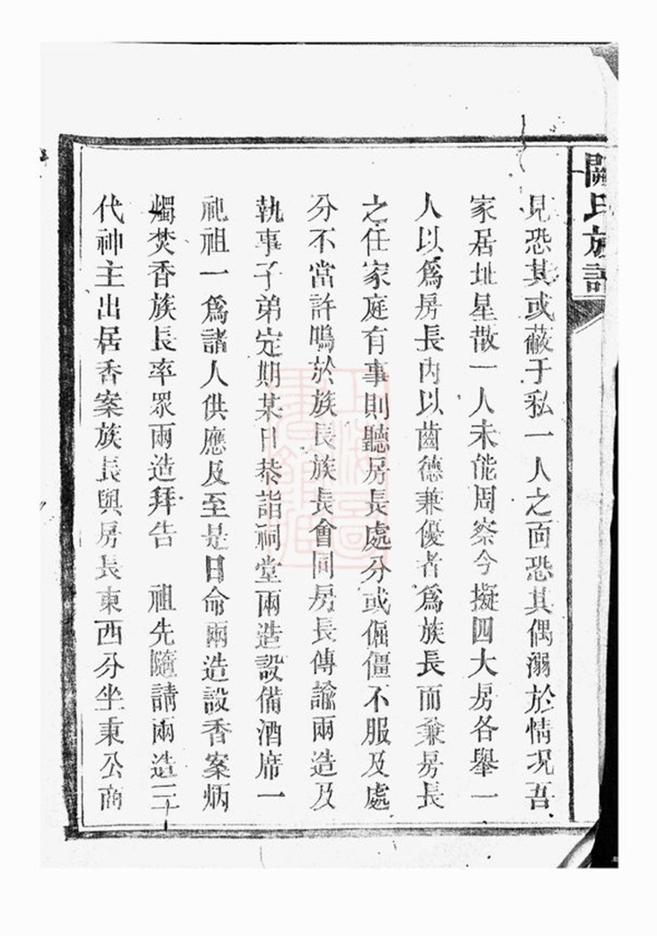 關氏族譜
見恐其或蔽于私一人之面恐其偶溺於情况吾
家居址星散一人未能周察今擬四大房各舉一
人以爲房長內以齒德兼優者爲族長而兼房長
之任家庭有事則聽房長處分或倔僵不服及處
分不當許鳴於族長族長會同房長傳諭兩造及
執事子弟定期某日恭詣祠堂兩造設備酒席一
祀祖一爲諸人供應及至是日命兩造設香案炳
燭焚香族長率眾兩造拜告　祖先隨請兩造三
代神主出居香案族長與房長東西分坐秉公商